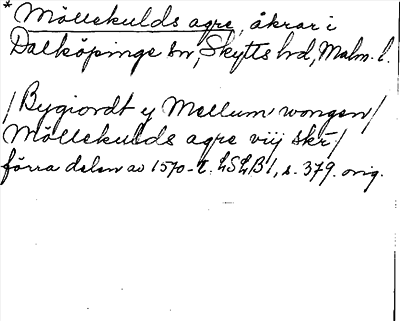 * Möllekulds agre, åkrar i
Dalköpinge sn, Skytts hd, Malm. l.
/Bygiordt y Mellum wongen/
Möllekulds agre viij skr/
förra delen av 1570-t. LSLB1, s. 379. orig.